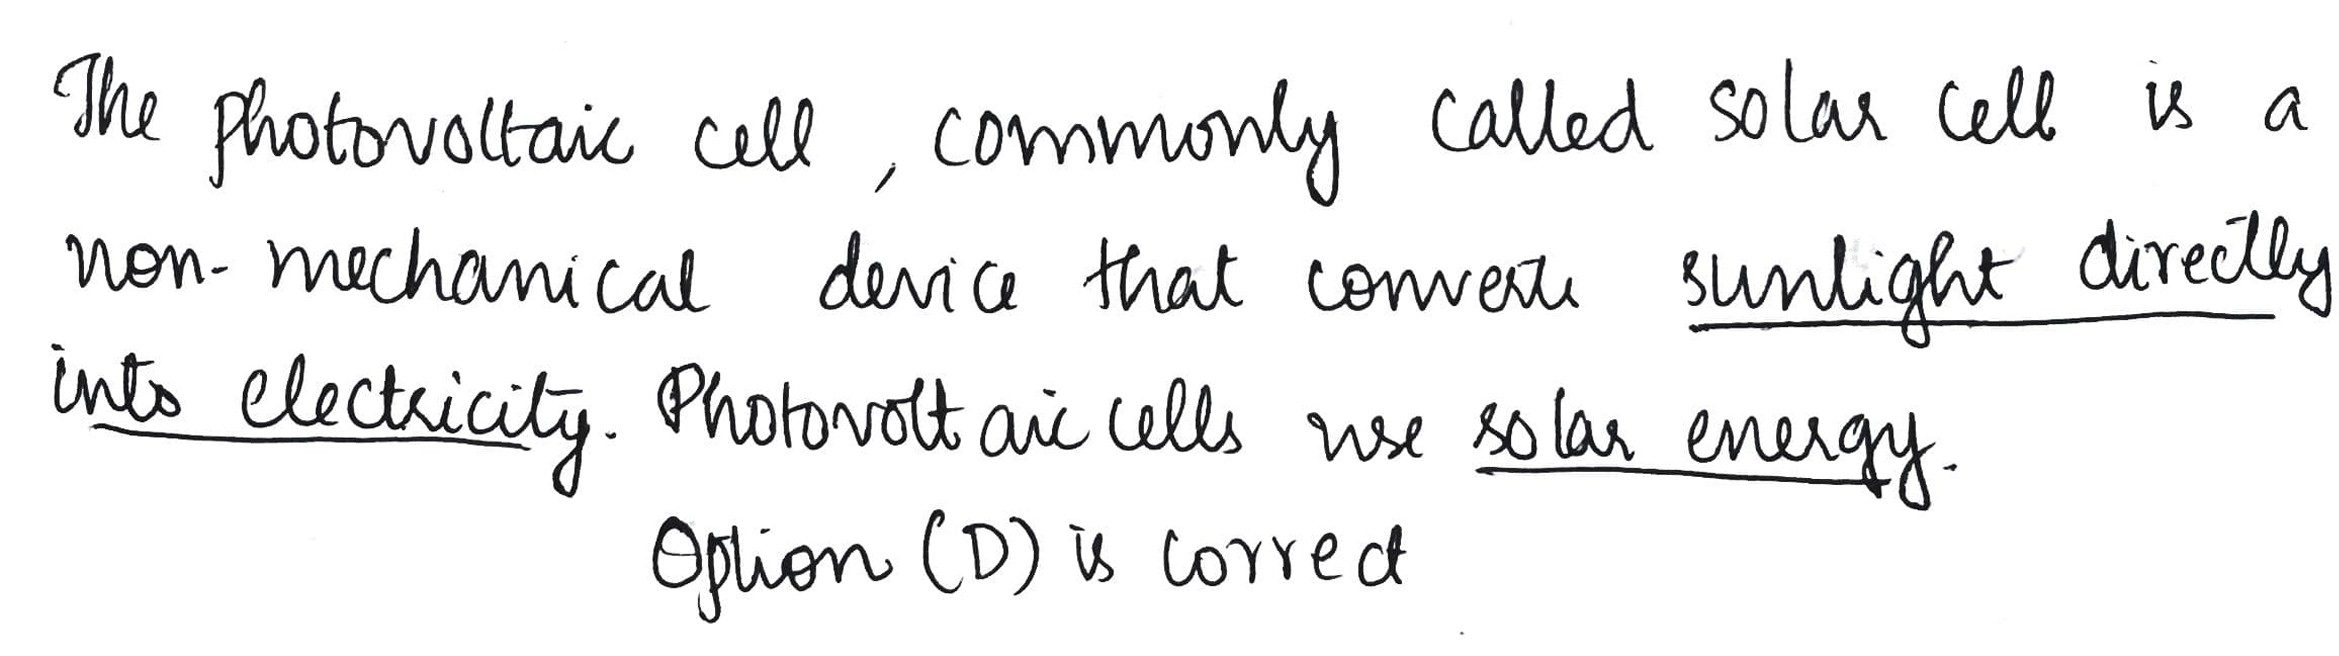 The photovoltaic cell, commonly called solar cell is a
non-mechanical device that converts sunlight directly
into electricity. Photovoltaic cells use solar energy.
Option (D) is correct